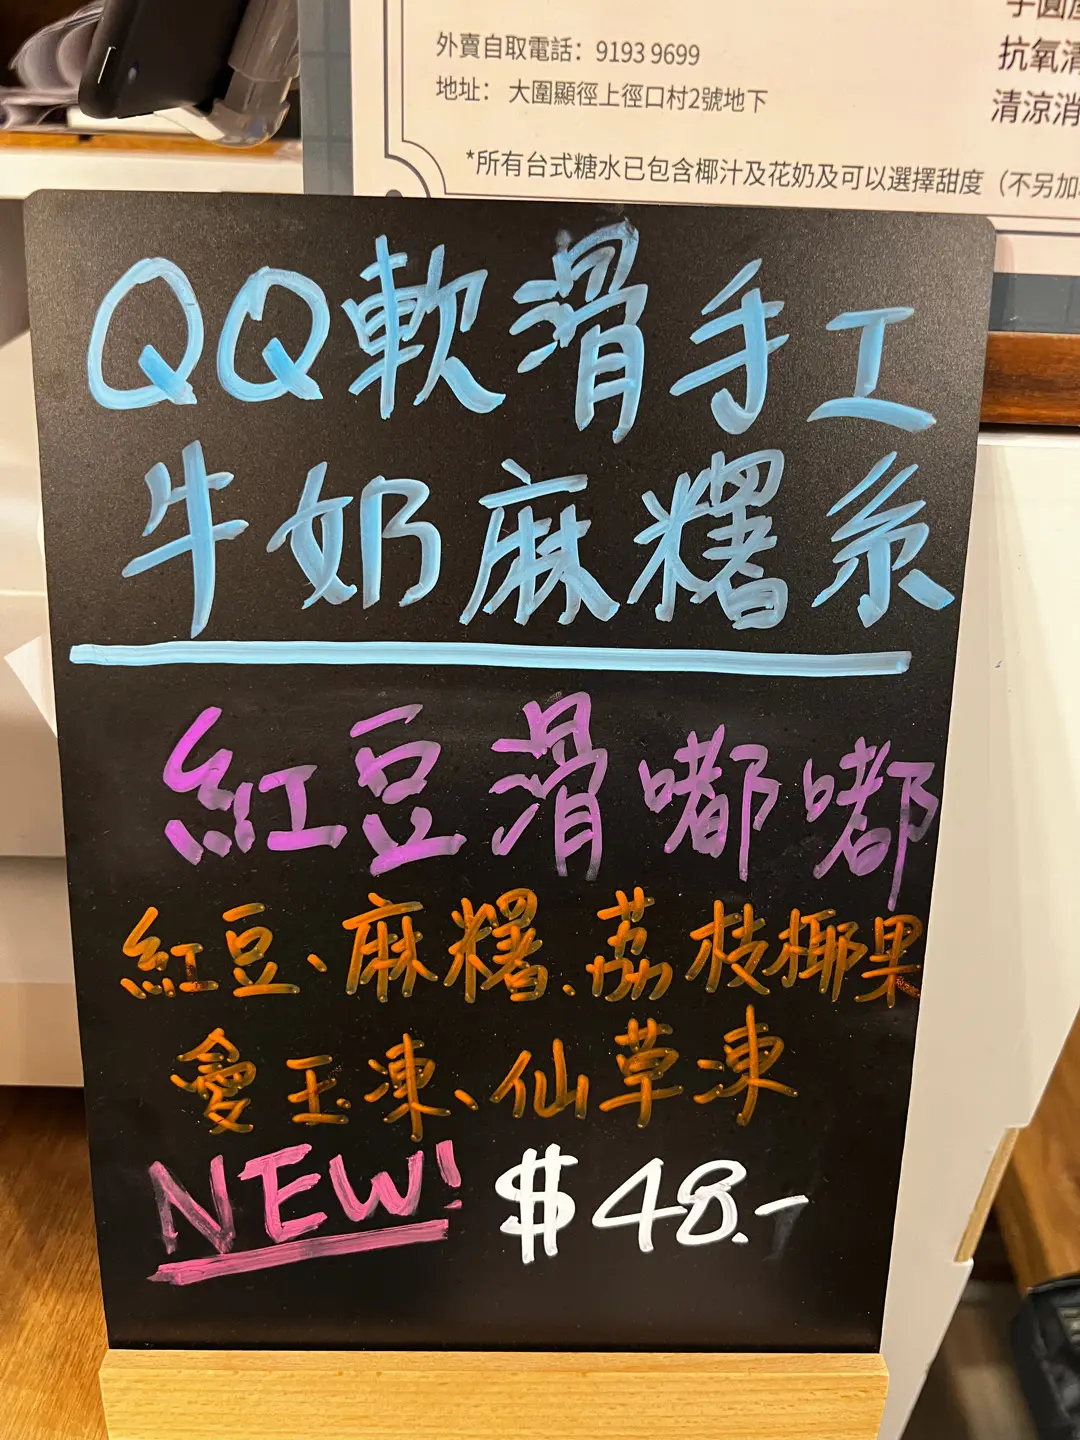 外賣自取電話：9193 9699
地址： 大圍顯徑上徑口村2號地下
*所有台式糖水已包含椰汁及花奶及可以選擇甜度（不另加
抗氧清
清涼消
QQ軟滑手工
牛奶麻糬系
紅豆滑嘟嘟
紅豆、麻糬、荔枝椰果
愛玉凍、仙草凍
NEW! $48.-